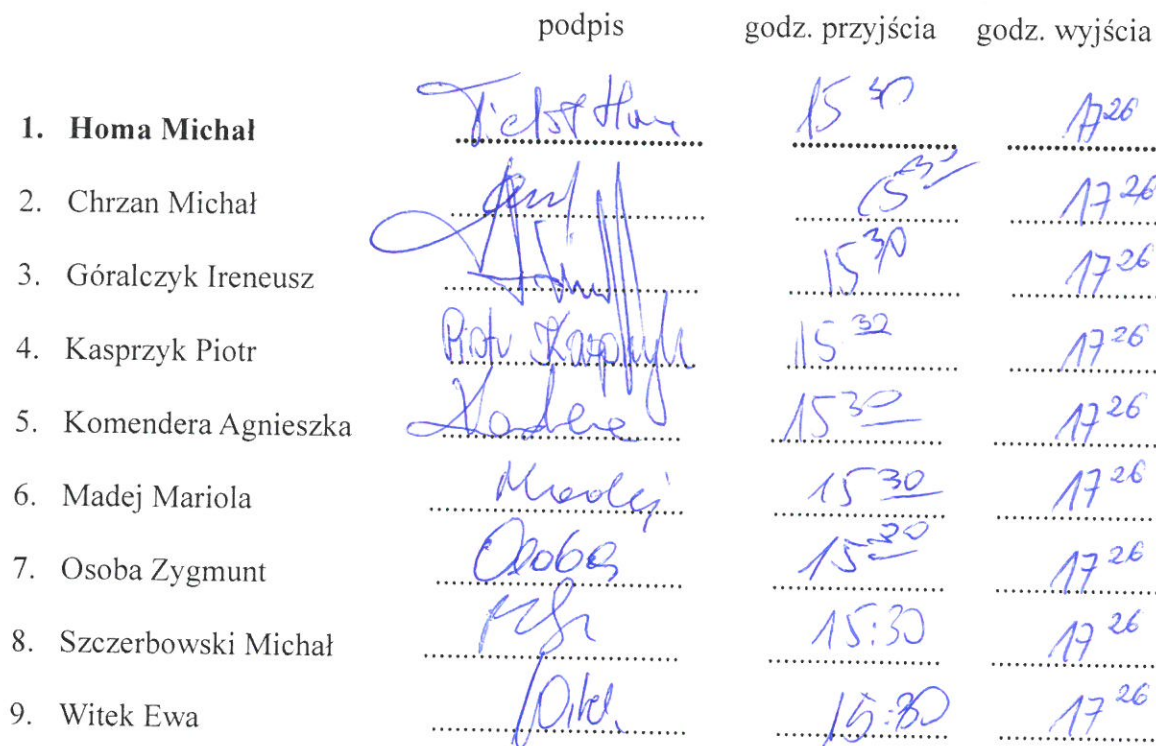 podpis godz. przyjścia godz. wyjścia
1. Homa Michał 15 30 17 26
2. Chrzan Michał 15 17 26
3. Góralczyk Ireneusz 15 30 17 26
4. Kasprzyk Piotr Piotr Kasprzyk 15 32 17 26
5. Komendera Agnieszka 15 30 17 26
6. Madej Mariola Madej 15 30 17 26
7. Osoba Zygmunt Osoba 15 30 17 26
8. Szczerbowski Michał 15:30 17 26
9. Witek Ewa Witek 15:30 17 26